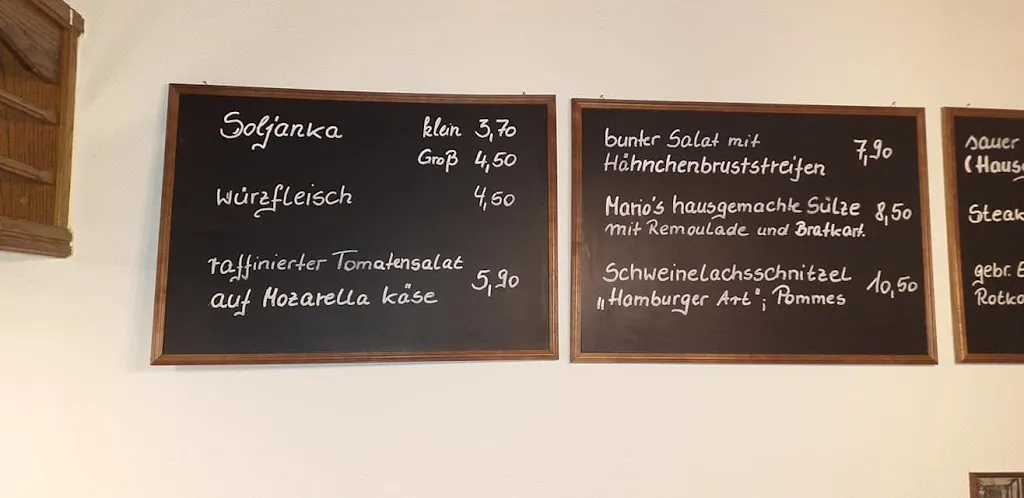 Soljanka klein 3,70
Groß 4,50
würzfleisch 4,50
raffinierter Tomatensalat
auf Mozarella käse 5,90
bunter Salat mit
Hähnchenbruststreifen 7,90
Mario's hausgemachte Sülze
mit Remoulade und Bratkart. 8,50
Schweinelachsschnitzel
„Hamburger Art"; Pommes 10,50
sauer
(Haus
Steak
gebr.
Rotko